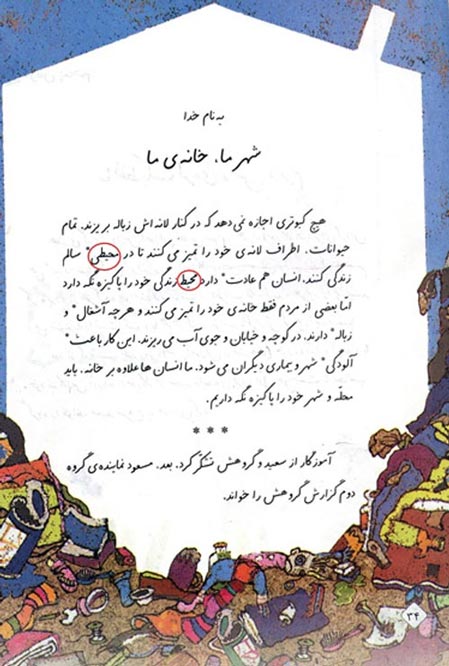 به نام خدا
شهر ما، خانه‌ی ما
هیچ کبوتری اجازه نمی‌دهد که در کنار لانه‌اش زباله بریزند. تمام
حیوانات، اطراف لانه‌ی خود را تمیز می‌کنند تا در محیطی* سالم
زندگی کنند. انسان هم عادت* دارد محیط زندگی خود را پاکیزه نگه دارد
امّا بعضی از مردم فقط خانه‌ی خود را تمیز می‌کنند و هر چه آشغال* و
زباله* دارند، در کوچه و خیابان و جوی آب می‌ریزند. این کار باعث*
آلودگی* شهر و بیماری دیگران می‌شود. ما انسان‌ها علاوه بر خانه، باید
محلّه و شهر خود را پاکیزه نگه داریم.
* * *
آموزگار از سعید و گروهش تشکّر کرد. بعد، مسعود نماینده‌ی گروه
دوم گزارش گروهش را خواند.
۳۴